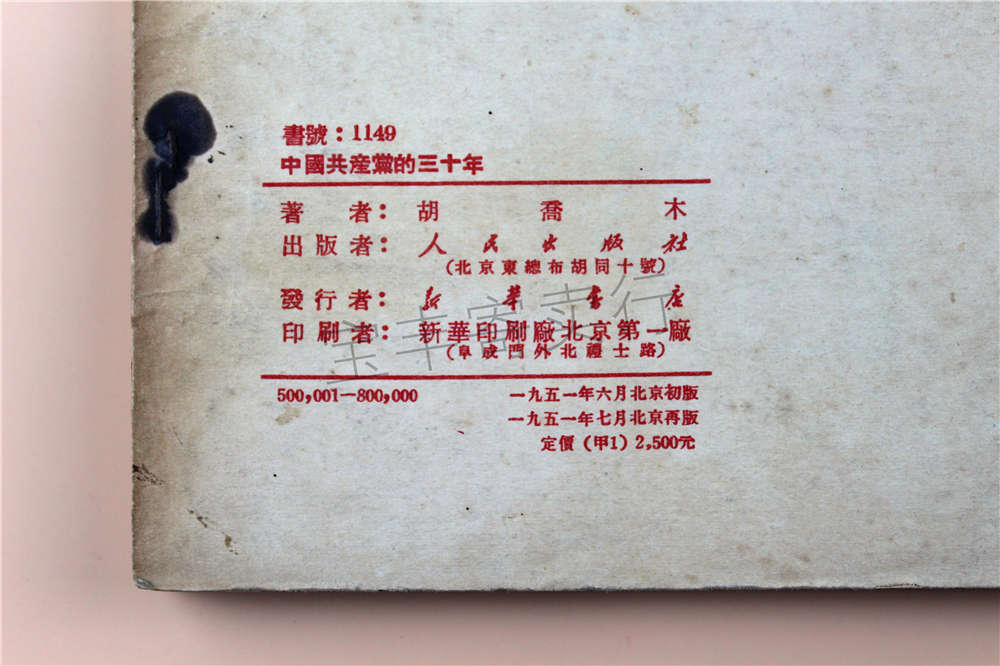 書號：1149
中國共產黨的三十年
著者：胡喬木
出版者：人民出版社
（北京東總布胡同十號）
發行者：新華書店
印刷者：新華印刷廠北京第一廠
（阜成門外北禮士路）
500,001—800,000
一九五一年六月北京初版
一九五一年七月北京再版
定價（甲1）2,500元
宝丰寄卖行